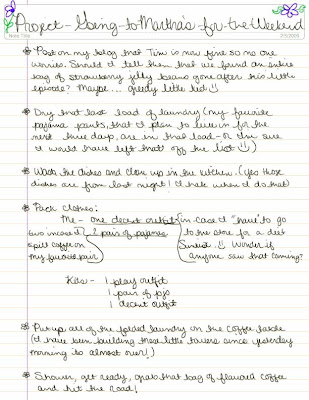 Project - Going-to-Martha's-for-the-Weekend
Note Title
2/5/2009
Post on my blog that Tim is now fine so no one
worries. Should I tell them that we found an entire
bag of strawberry jelly beans gone after his little
episode? Maybe... greedy little kid
Dry that last load of laundry (my favorite
pajama pants, that I plan to live in for the
next three days, are in that load - or I'm sure
I would have left that off the list)
Wash the dishes and clean up in the kitchen. (yes those
dishes are from last night! I hate when I do that)
Pack clothes:
Me - one decent outfit (in case I "have" to go
two incase I 2 pair of pajamas to the store for a diet
spill coffee on Sunkist. Wonder if
my favorite pair anyone saw that coming?
Kids - 1 play outfit
1 pair of pjs
1 decent outfit
Put up all of the folded laundry on the coffee table
(I have been building those little towers since yesterday
morning is almost over!)
Shower, get ready, grab that bag of flavored coffee
and hit the road!